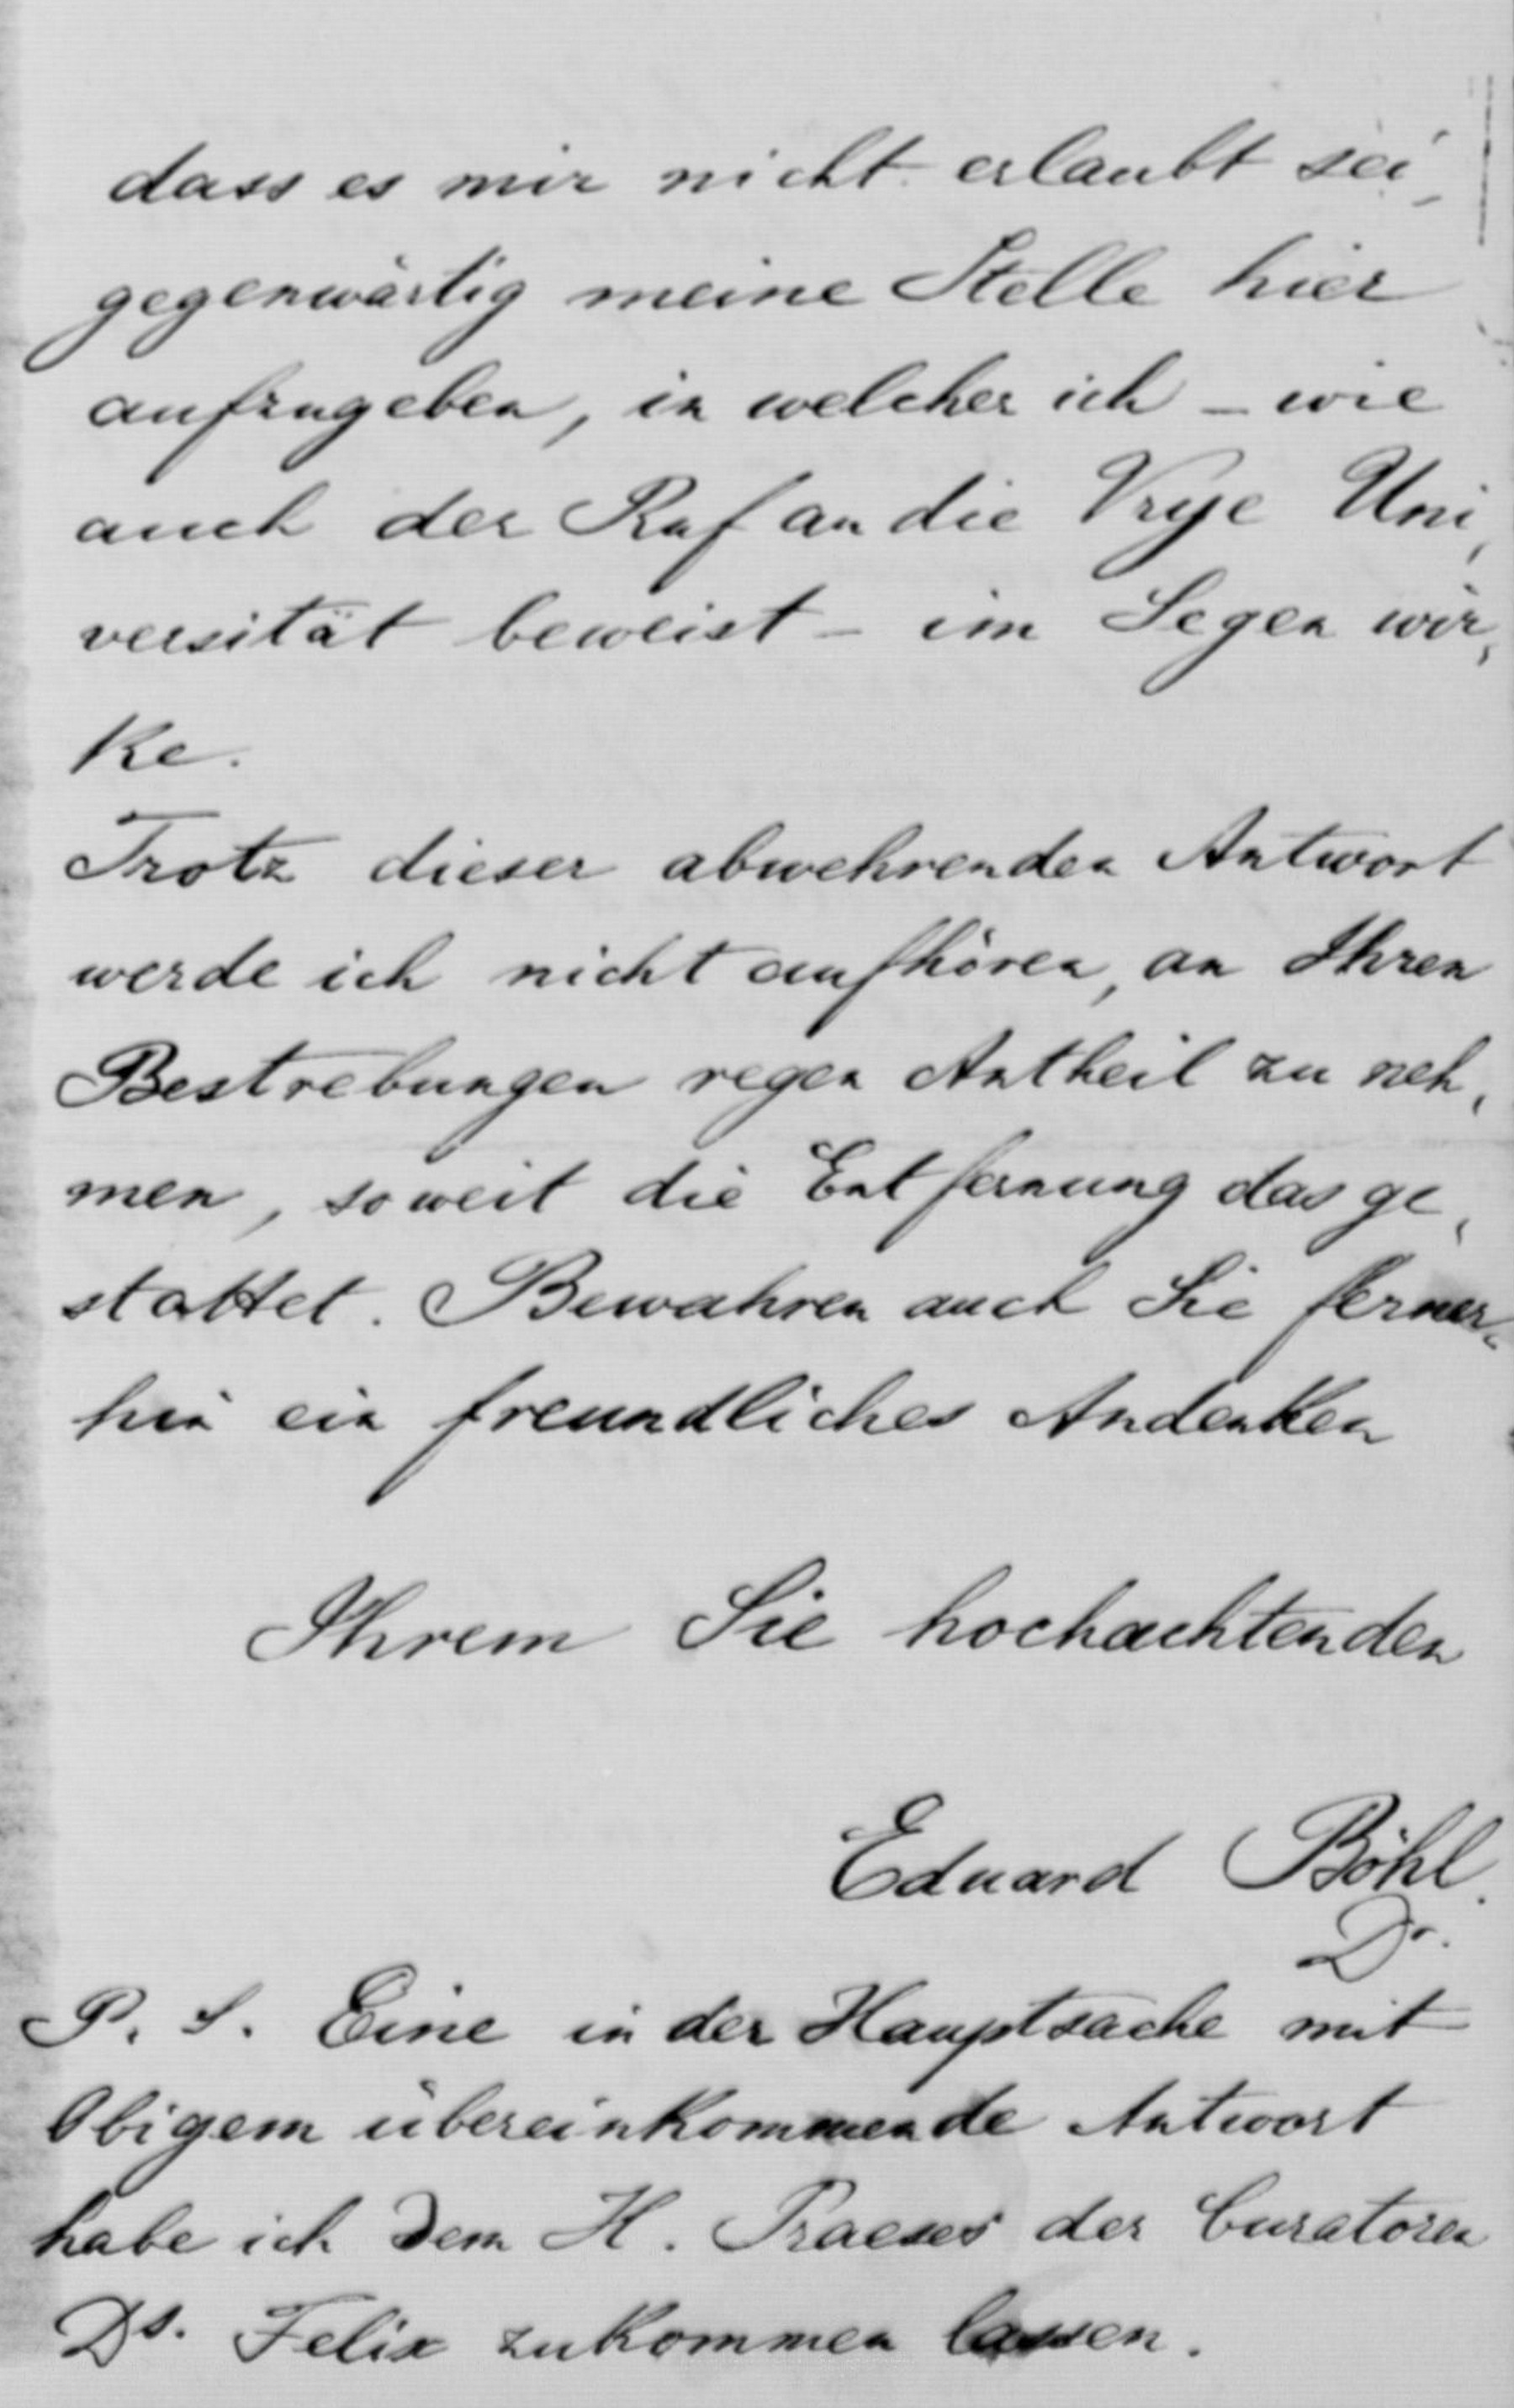 dass es mir nicht erlaubt sei,
gegenwärtig meine Stelle hier
aufzugeben, in welcher ich – wie
auch der Ruf an die Vrye Uni,
versität beweist – im Segen wir,
ke.
Trotz dieser abwehrenden Antwort
werde ich nicht aufhören, an Ihren
Bestrebungen regen Antheil zu neh,
men, soweit die Entfernung das ge,
stattet. Bewahren auch Sie ferner,
hin ein freundliches Andenken
Ihrem Sie hochachtenden
Eduard Böhl.
Dr.
P. S. Eine in der Hauptsache mit
Obigem übereinkommende Antwort
habe ich dem H. Praeses der Curatoren
Ds. Felix zukommen lassen.